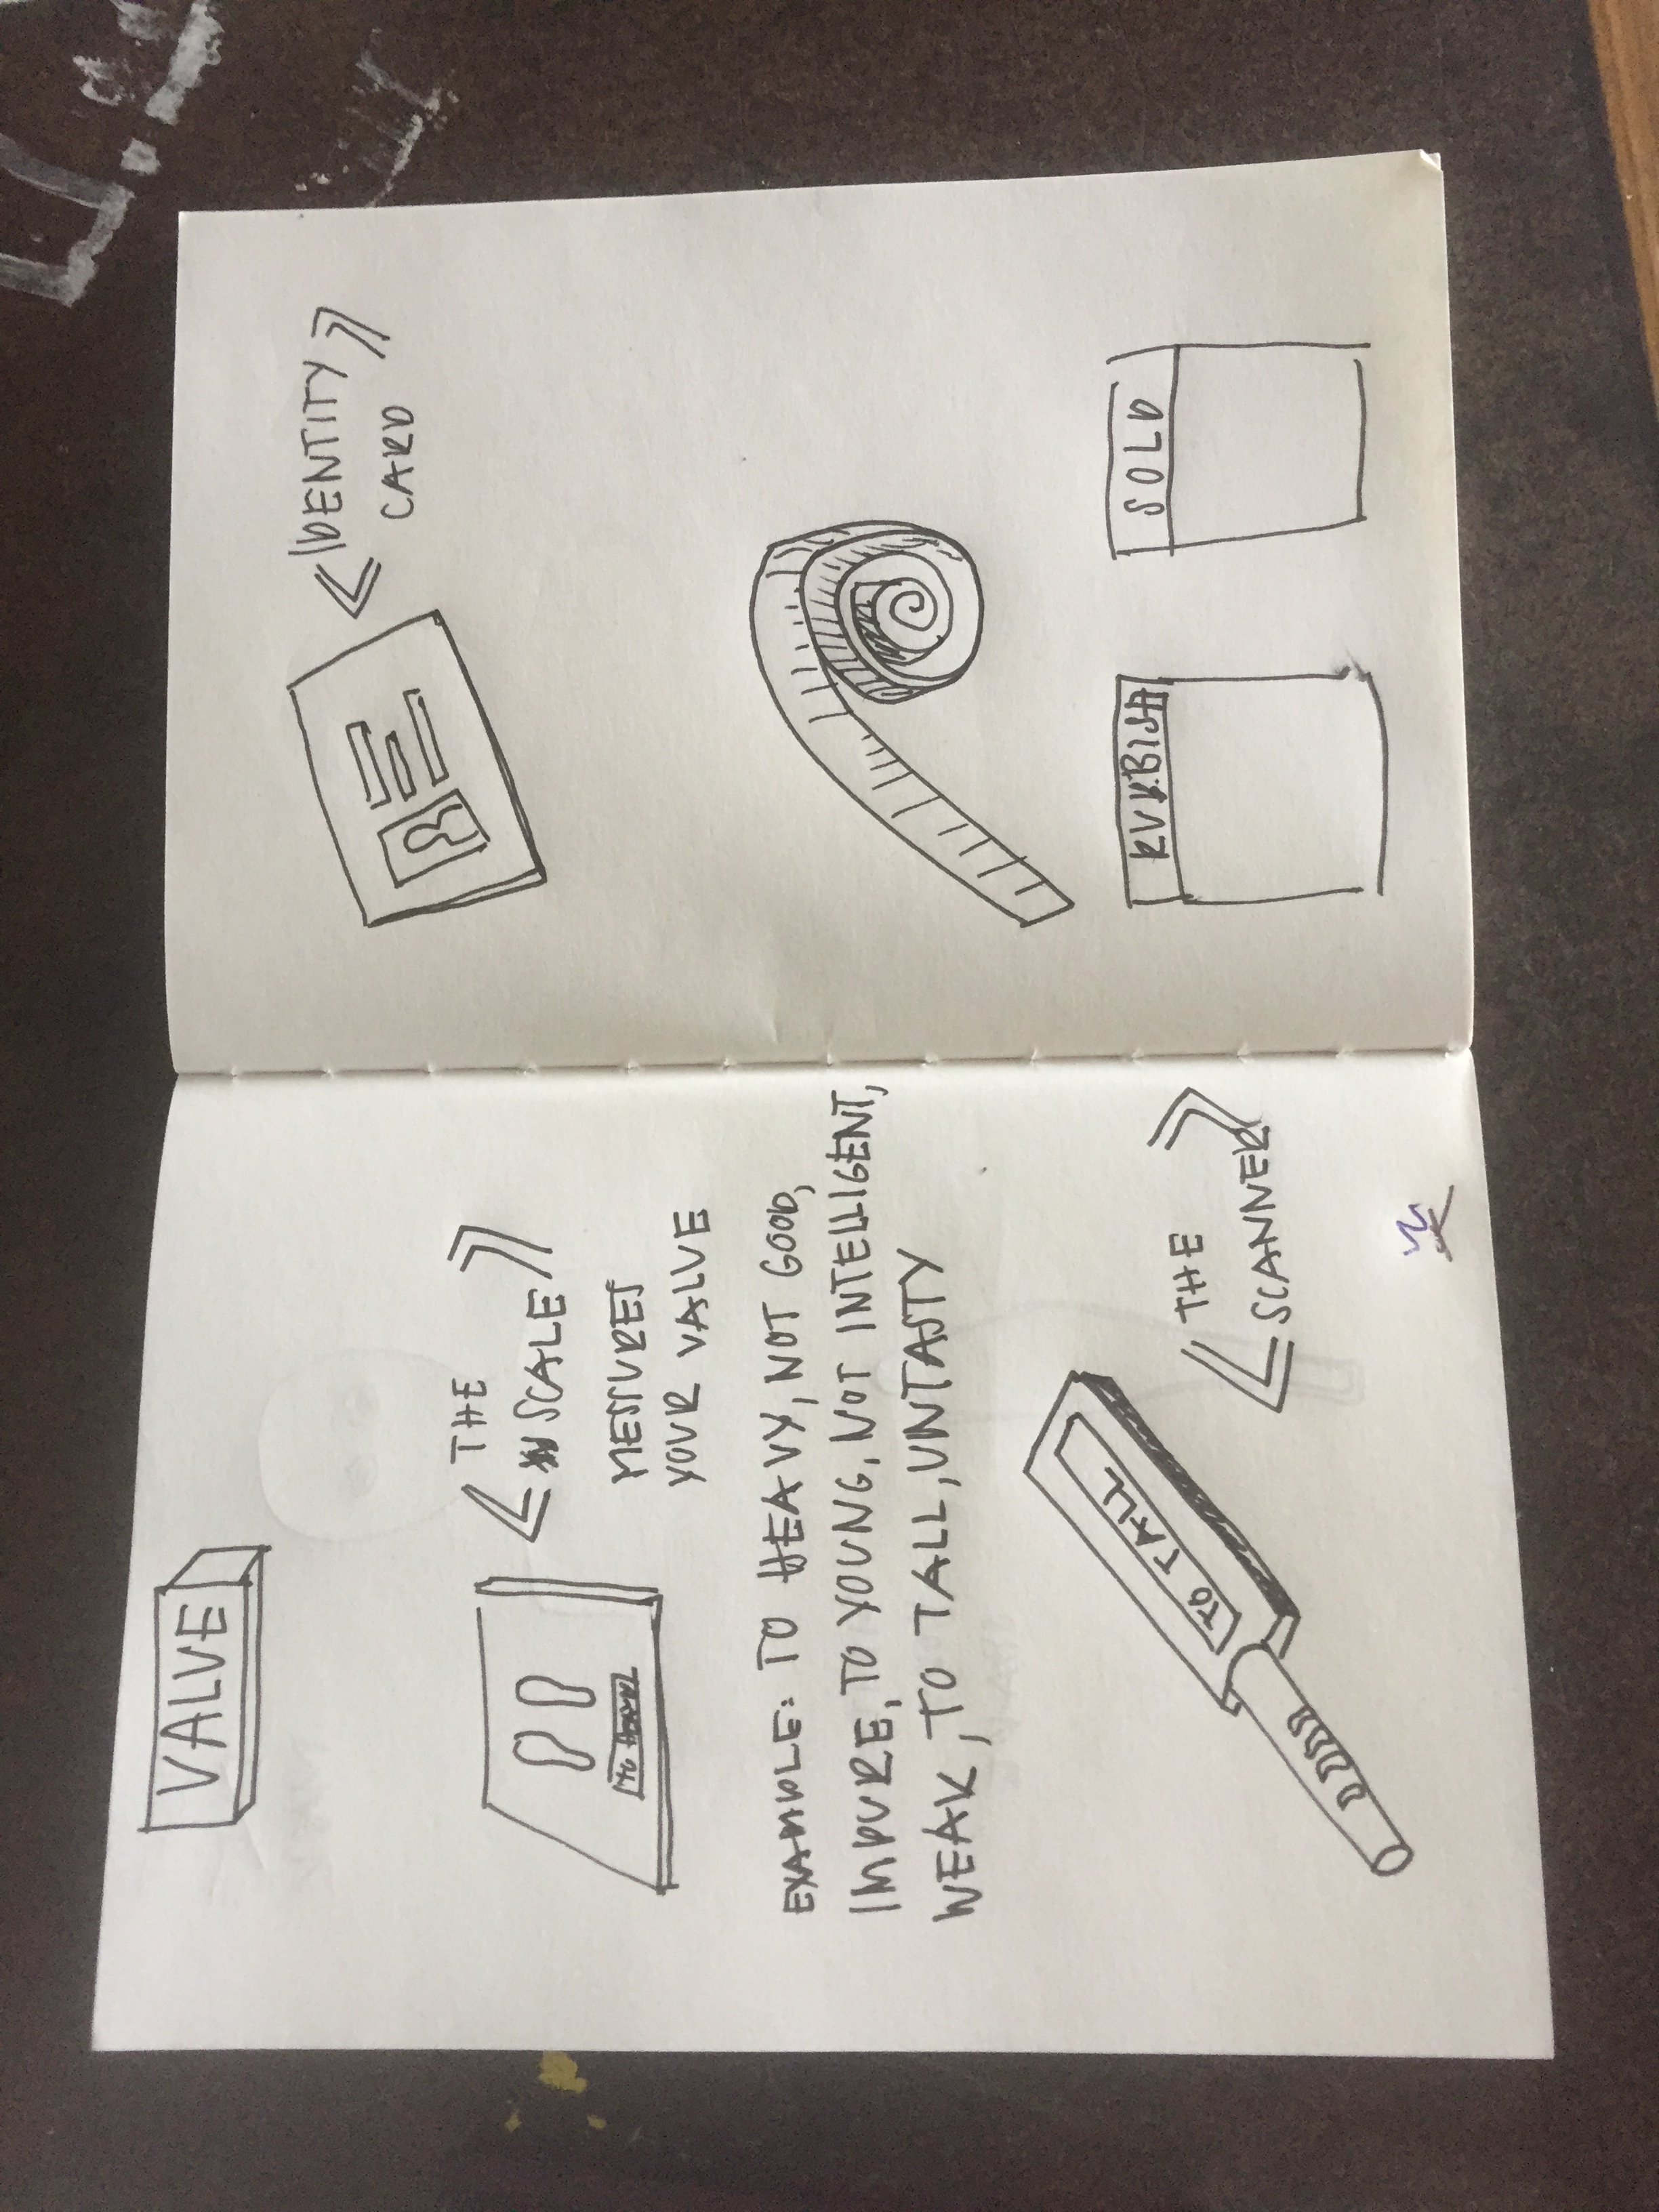 VALUE
« THE
SCALE »
MESSURES
YOUR VALUE
TO HEAVY
EXAMPLE: TO HEAVY, NOT GOOD,
IMPURE, TO YOUNG, NOT INTELLIGENT,
WEAK, TO TALL, UNTASTY
TO TALL
« THE
SCANNER »
« IDENTITY »
CARD
RUBBISH
SOLD